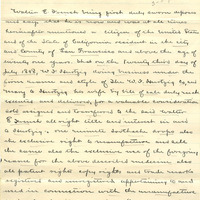 Walter E. Dennett being first duly sworn deposes
and says: that he is now and was at all times
hereinafter mentioned a citizen of the United States
and of the State of California resident in the city
and County of San Francisco and above the age of
twenty one years. that on the twenty third day of
July 1888, W. J. Hentzy doing business under the
and style of The W. J. Hentzy &
his wife by bill of sale duly made
executed, and delivered, for a valuable consideration
sold assigned and transferred to the said Walter
E. Dennett all right title and interest in and
to one minute toothache drops also
the exclusive right to manufacture and sell
the same also the exclusive use of the foregoing
name for the above described medicine also
all patent right copy rights and trade marks
registered arrangements appertaining to and
used in connection with the manufacture